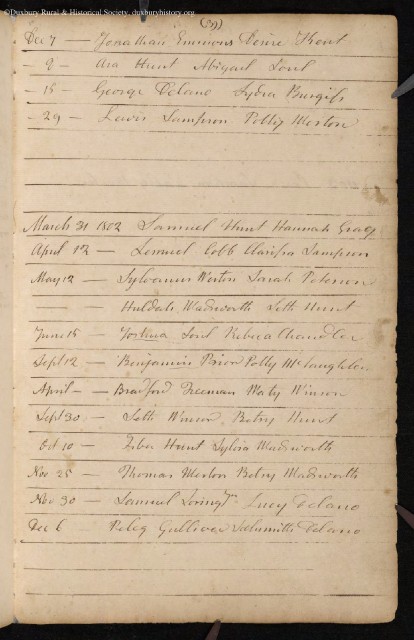 ©Duxbury Rural & Historical Society, duxburyhistory.org
(39)
Dec 7 — Jonathan Emmons Desire Kent
- 9 - Asa Hunt Abigail Soul
- 15 - George Delano Lydia Burgiss
- 29 - Lewis Sampson Polly Weston
March 31 1802 Samuel Hunt Hannah Gray
April 12 — Lemuel Cobb Clarissa Sampson
May 12 — Sylvanus Weston Sarah Peterson
— — Huldah Wadsworth Seth Hunt
June 15 — Joshua Soul Rebecca Chandler
Sept 12 — Benjamin Prior Polly McLaughlen
April — — Bradford Freeman Waty Winsor
Sept 30 — Seth Winsor Betsy Hunt
Oct 10 — Hunt Sylvia Wadsworth
Nov 25 — Thomas Weston Betsy Wadsworth
Nov 30 — Samuel Loring Lucy Delano
Dec 6 Peleg Gulliver Delano